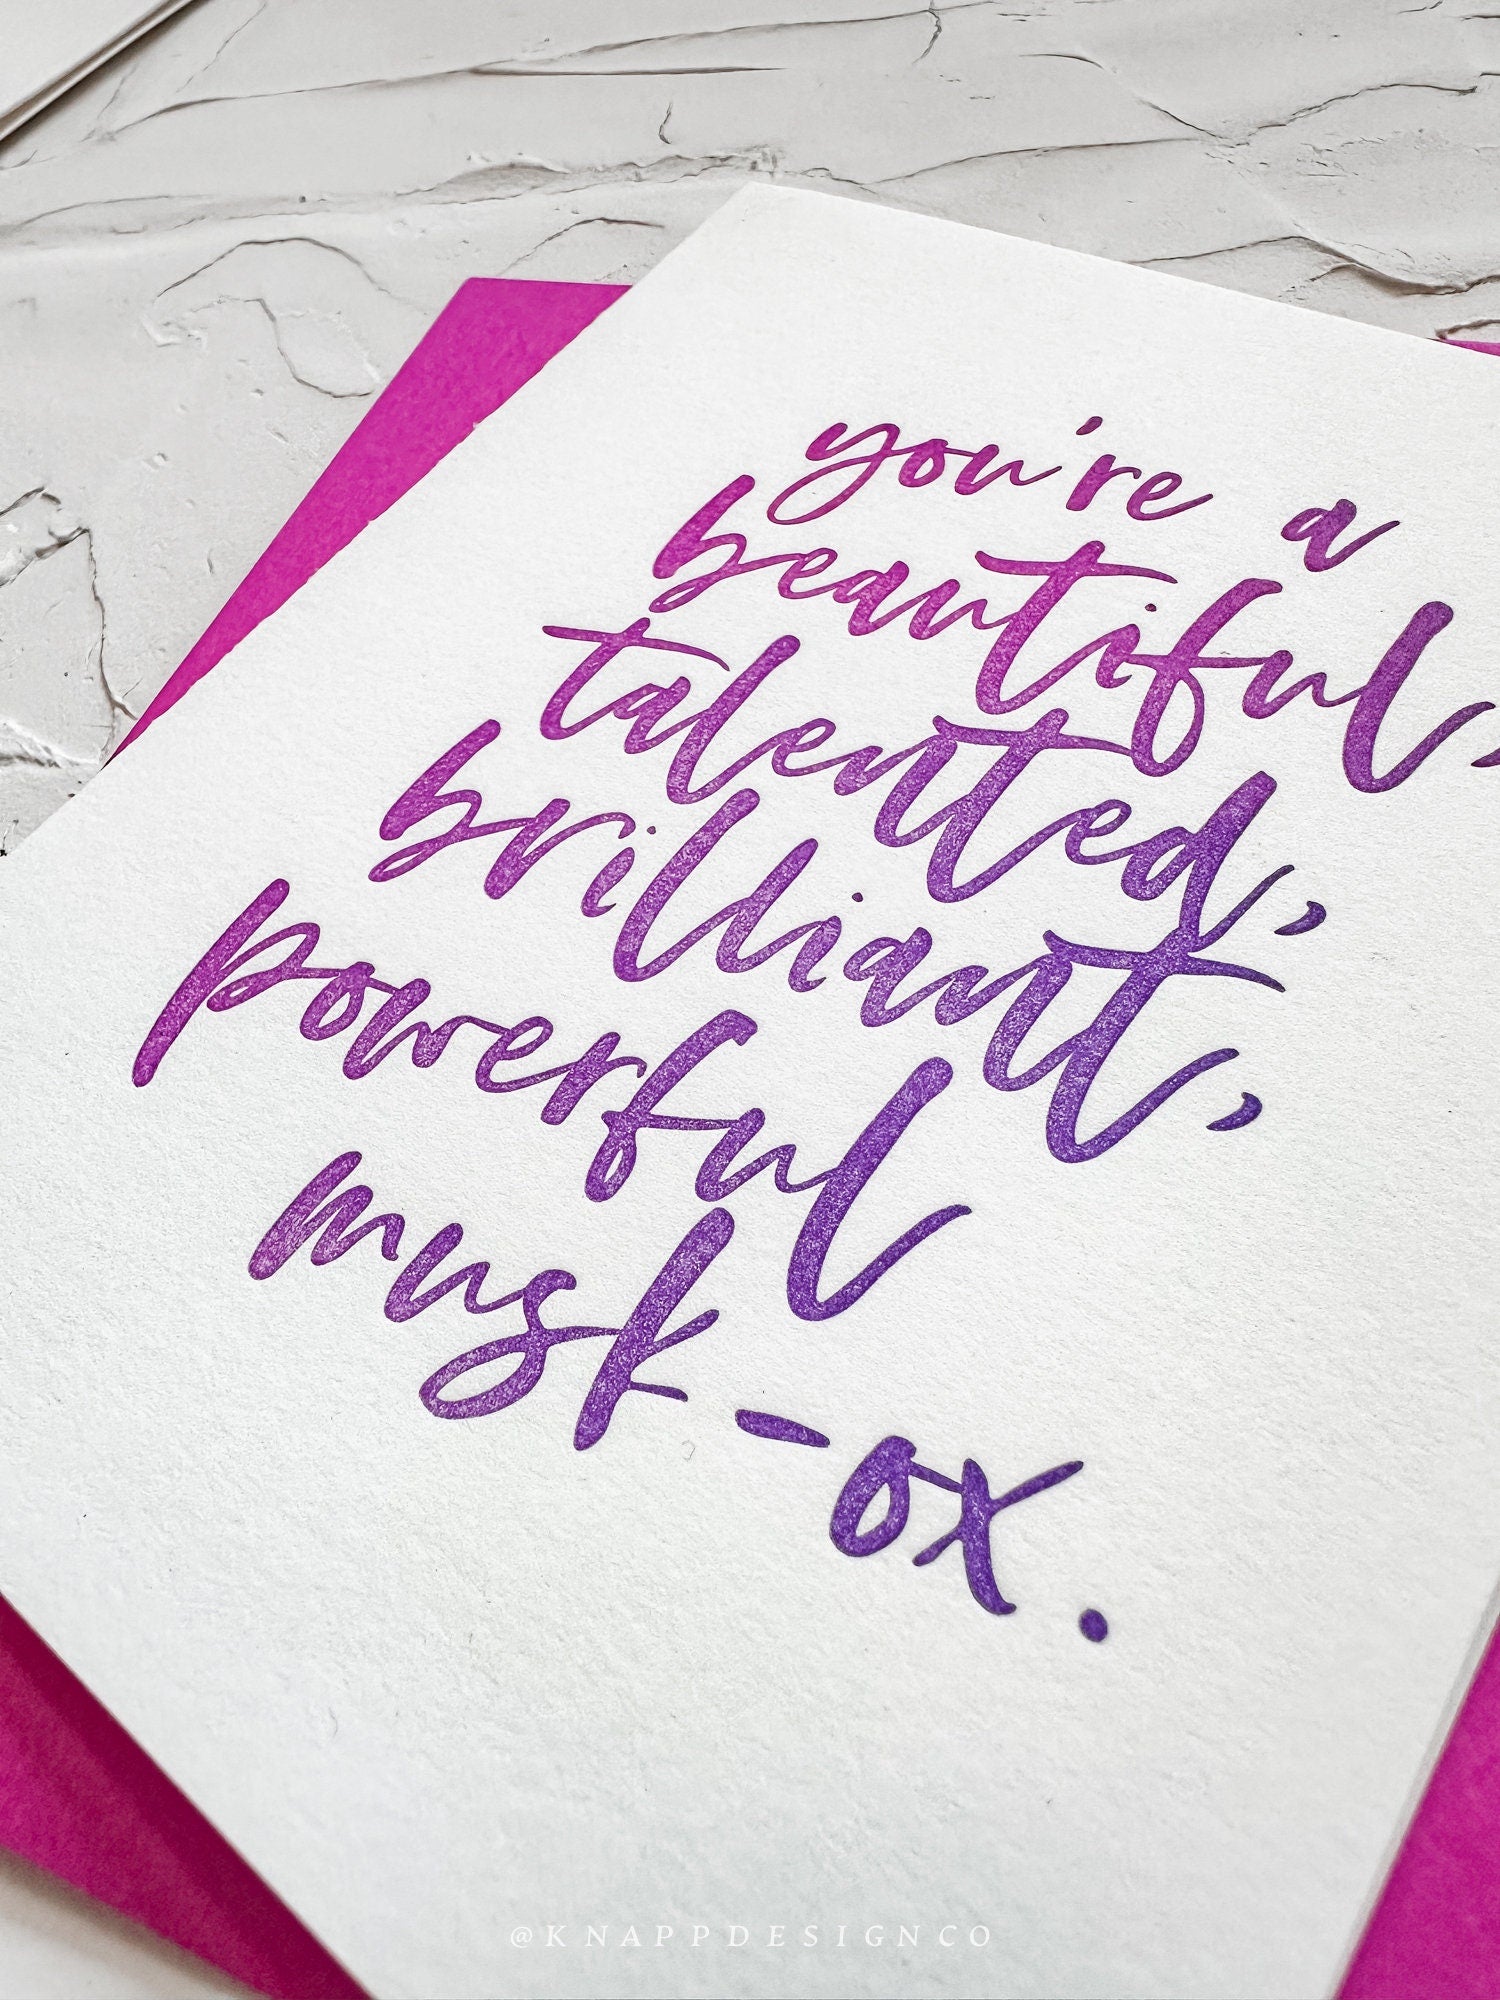 you're a
beautiful,
talented,
brilliant,
powerful
musk-ox.
@KNAPPDESIGNCO